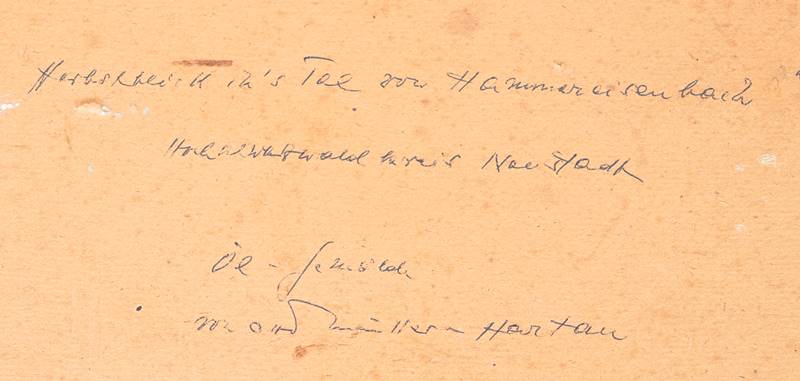 Herbstblick in's Tal von Hammereisenbach
Hochschwarzwald kreis Neustadt
Öl - Gemälde
von Müller - Hartau